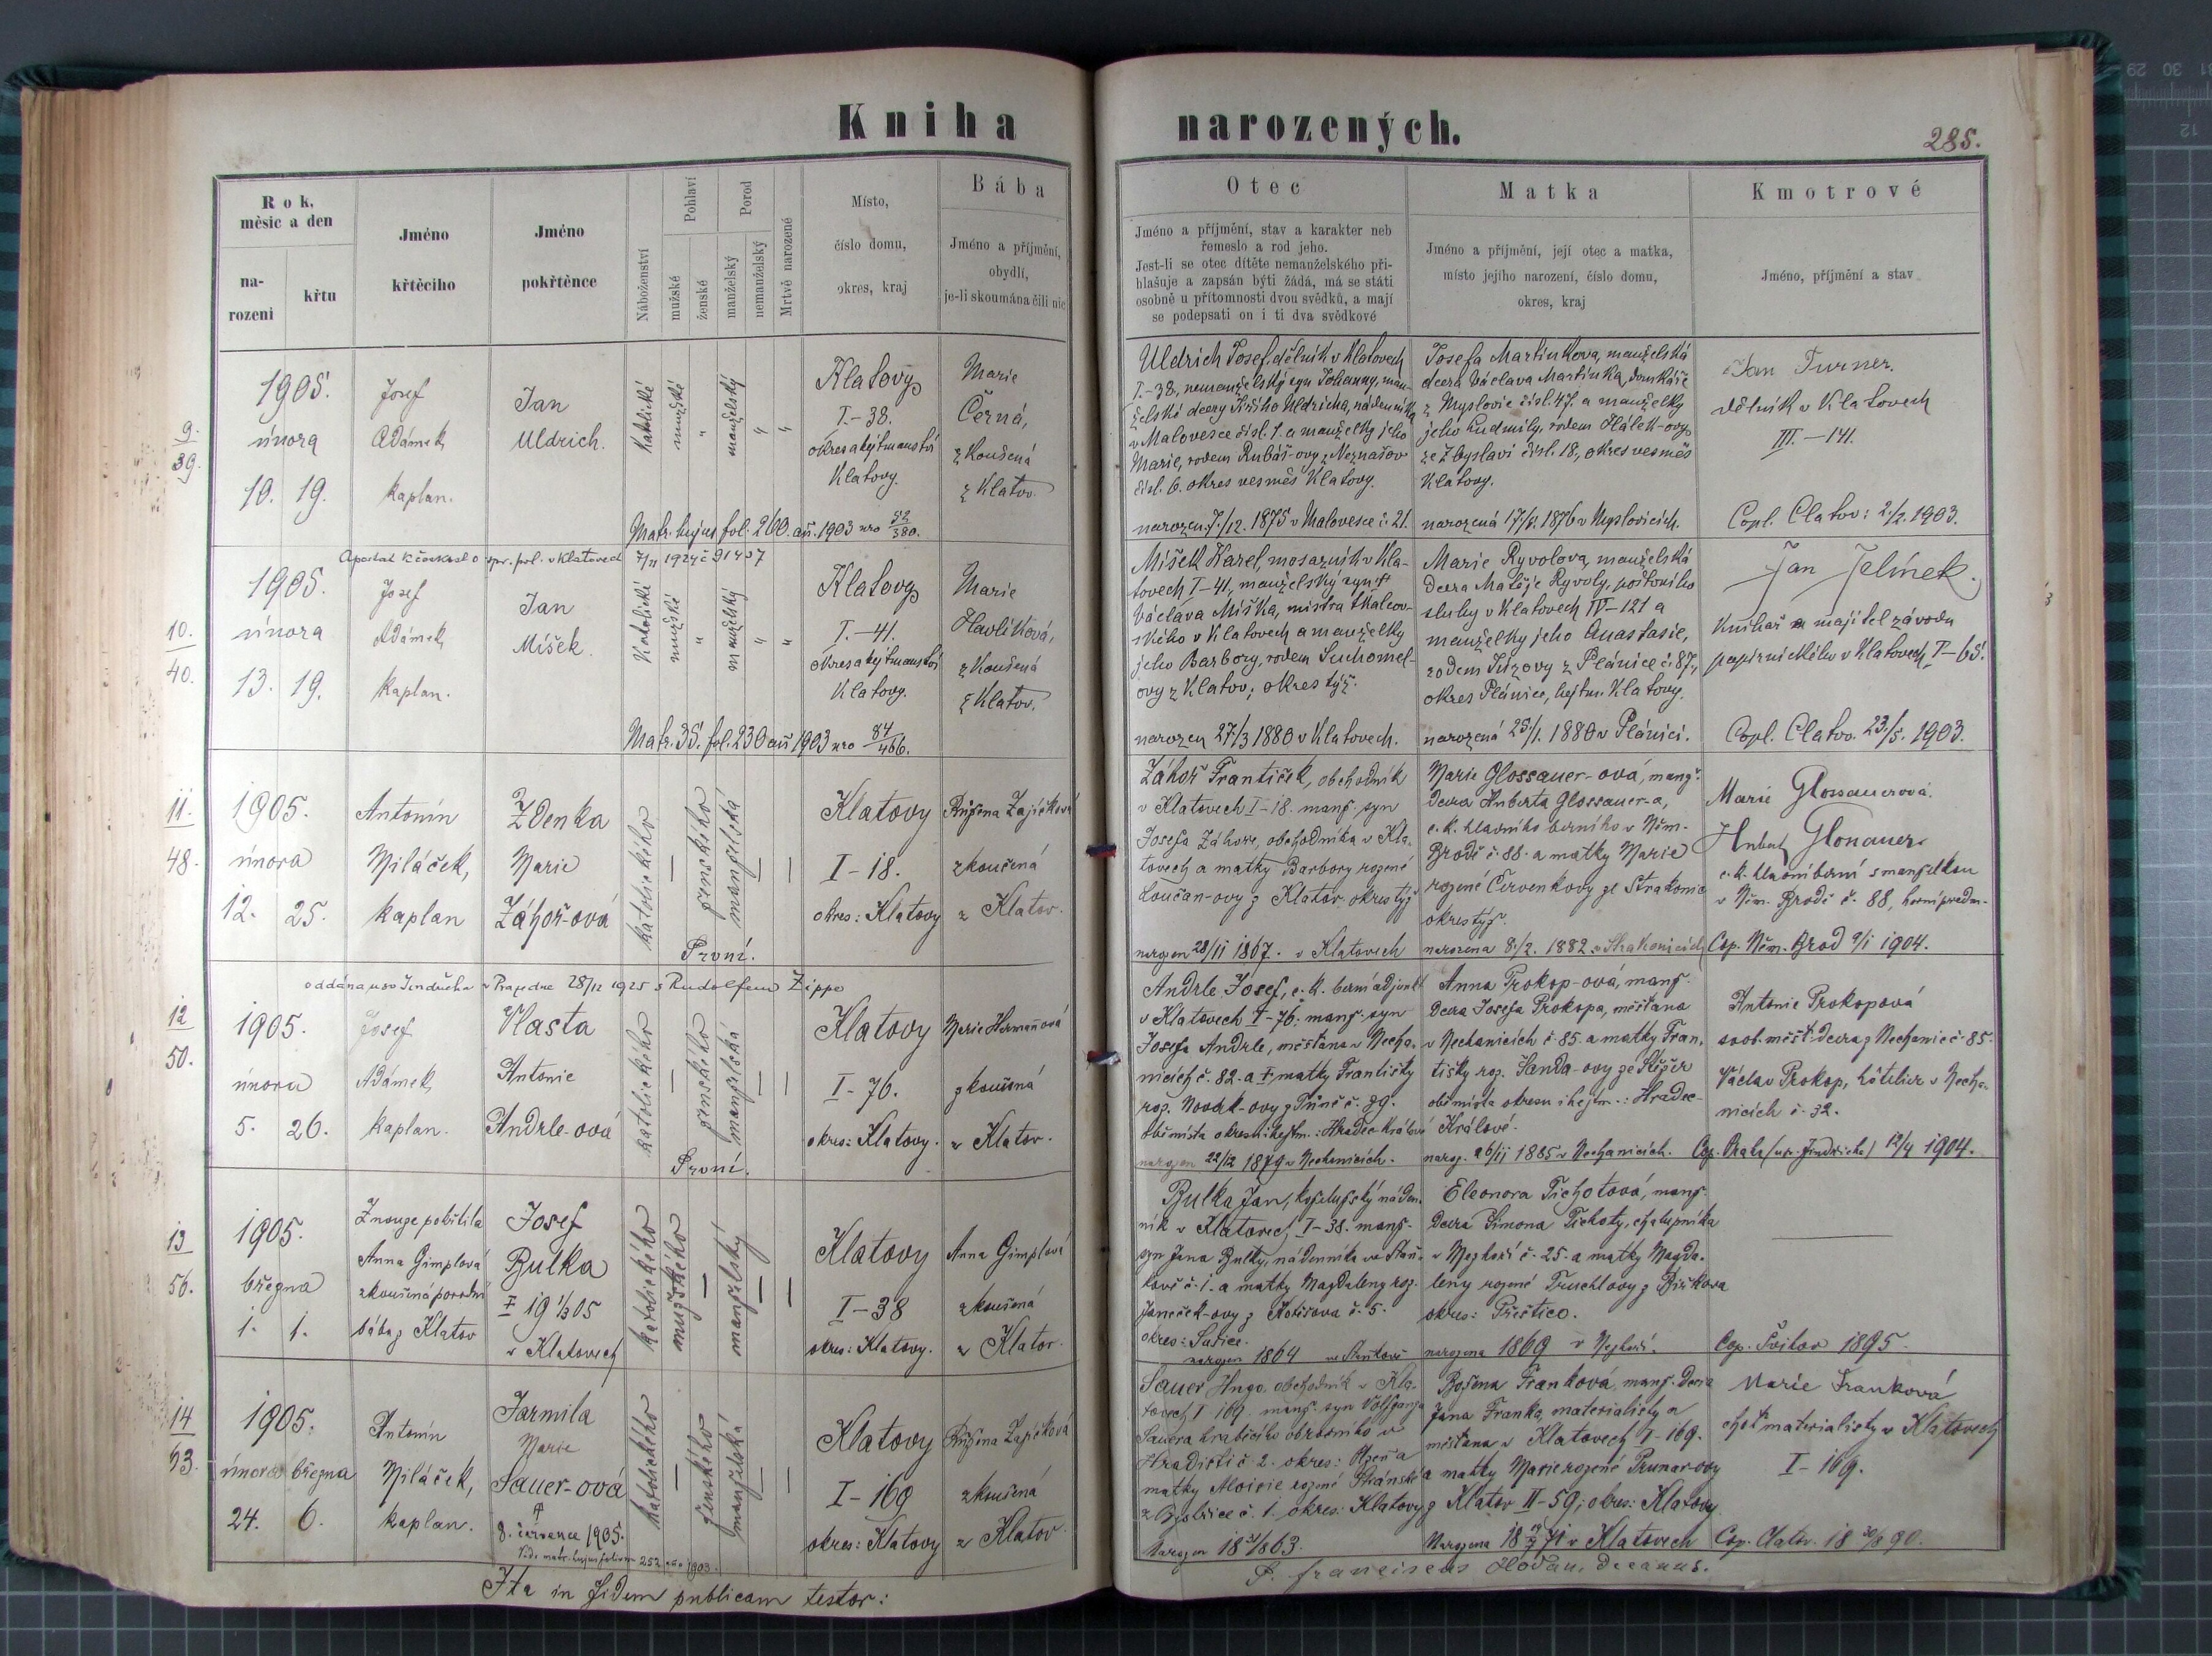 Kniha narozených.
285.
Rok, měsíc a den
na-
rození
křtu
Jméno
křtěcího
Jméno
pokřtěnce
Náboženství
Pohlaví
mužské
ženské
Porod
manželský
nemanželský
Mrtvě narozené
Místo,
číslo domu,
okres, kraj
Bába
Jméno a příjmění,
obydlí,
je-li skoumána čili nic
Otec
Jméno a příjmění, stav a karakter neb
řemeslo a rod jeho.
Jest-li se otec dítěte nemanželského při-
hlašuje a zapsán býti žádá, má se státi
osobně u přítomnosti dvou svědků, a mají
se podepsati on i ti dva svědkové
Matka
Jméno a příjmění, její otec a matka,
místo jejího narození, číslo domu,
okres, kraj
Kmotrové
Jméno, příjmění a stav
9.
39.
1905.
února
10. 19.
Josef
Adámek,
kaplan.
Jan
Uldrich.
Katolické
mužské
"
manželský
"
"
Klatovy
I-38.
okres a hejtmanství
Klatovy.
Marie
Černá,
zkoušená
z Klatov.
Matr. hujus fol. 260. an. 1903 nro 52/380.
Uldrich Josef, dělník v Klatovech
I-38, nemanželský syn Johanny, man-
želské dcery Jiřího Uldricha, nádeníka
v Malovesce čísl. 1. a manželky jeho
Marie, rodem Rubáš-ovy z Neznašov
čísl. 6. okres vesměs Klatovy.
narozen 7./12. 1875 v Malovesce č. 21.
Josefa Martínkova, manželská
dcera Václava Martínka, domkáře
z Myslovic čísl. 47. a manželky
jeho Ludmily, rodem Hálek-ovy
ze Zbyslavi čísl. 18., okres vesměs
Klatovy.
narozená 17./8. 1876 v Myslovicích.
Jan Turner.
dělník v Klatovech
III. - 141.
Copl. Clatov: 2./2. 1903.
10.
40.
1905.
února
13. 19.
Josef
Adámek,
kaplan.
Jan
Míšek.
Katolické
mužské
"
manželský
"
"
Klatovy
I.-41.
okres a hejtmanství
Klatovy.
Marie
Havlíková,
zkoušená
z Klatov.
Matr. 35. fol. 230 an 1903 nro 84/466.
Míšek Karel, mosazník v Kla-
tovech I-41, manželský syn
Václava Míška, mistra tkalcov-
ského v Klatovech a manželky
jeho Barbory, rodem Suchomel-
ovy z Klatov; okres týž.
narozen 27/3 1880 v Klatovech.
Marie Ryvolova, manželská
dcera Matěje Ryvoly, poštovního
sluhy v Klatovech IV-121 a
manželky jeho Anastasie,
rodem z Plánice č. 87.,
okres Plánice, hejtm. Klatovy.
narozená 25/1. 1880 v Plánici.
Jan Jelínek.
Knihař a majitel závodu
papírnického v Klatovech, I-65.
Copl. Clatov. 23./5. 1903.
11.
48.
1905.
února
12. 25.
Antonín
Miláček,
kaplan
Zdenka
Marie
Záhoř-ová
katolického
ženského
manželská
První.
Klatovy
I-18.
okres: Klatovy
Růžena Zajíčková
zkoušená
z Klatov.
Záhoř František, obchodník
v Klatovech I-18. manž. syn
Josefa Záhoře, obchodníka v Kla-
tovech a matky Barbory rozené
Loučan-ovy z Klatov okres týž
narozen 28/11 1867. v Klatovech
Marie Glossauer-ová, manž.
dcera Huberta Glossauer-a,
c. k. hlavního berního v Něm.
Brodě č. 88. a matky Marie
rozené Červenkovy ze Strakonic
okres týž.
narozena 8./2. 1882 v Strakonicích
Marie Glossauerová.
Hubert Glossauer
c. k. hlavní berní s manželkou
v Něm. Brodě č. 88, horní předm-
Cop. Něm. Brod 9/1 1904.
12
50.
oddána u sv Jindřicha v Praze dne 28/12 1925 s Rudolfem Zippe
1905.
února
5. 26.
Josef
Adámek,
kaplan.
Vlasta
Antonie
Andrle-ová
katolického
ženského
manželská
První.
Klatovy
I-76.
okres: Klatovy.
Marie Heřmanová
zkoušená
z Klatov.
Andrle Josef, c. k. berní adjunkt
v Klatovech I-76: manž. syn
Josefa Andrle, měšťana v Necha-
nicích č. 82. a matky Františky
roz. Novák-ovy z č. 89.
obě místa okresu i hejtm.: Hradec Králové
narozen 22/12 1879 v Nechanicích.
Anna Prokop-ová, manž.
dcera Josefa Prokopa, měšťana
v Nechanicích č. 85. a matky Fran-
tišky roz. Šanda-ovy ze Stěžer
obě místa okresu i hejtm.: Hradec-
Králové.
naroz. 26/11 1885 v Nechanicích.
Antonie Prokopová
svob. měšť. dcera z Nechanic č. 85.
Václav Prokop, hôtelier v Necha-
nicích č. 32.
Cop. Praha (u sv. Jindřicha) 12/4 1904.
13
56.
1905.
března
1. 1.
Z nouze pokřtila
Anna Gimplová
zkoušená porodní
bába z Klatov
Josef
Bulka
† 19 1/3 05
v Klatovech
katolického
mužského
manželský
Klatovy
I-38
okres: Klatovy.
Anna Gimplová
zkoušená
z Klatov.
Bulka Jan, koželužský náden-
ník v Klatovech, I-38. manž.
syn Jana Bulky, nádenníka ve Staň-
kově č. 1. a matky Magdaleny roz.
Janeček-ovy z Kotišova č. 5.
okres: Sušice.
narozen 1864
Eleonora Tichotová, manž.
dcera Šimona Tichoty, chalupníka
v č. 25. a matky Magda-
leny rozené Truschlovy z Biřkova
okres: Přeštice.
narozena 1869
Cop. Švihov 1895.
14
53.
1905.
února března
24. 6.
Antonín
Miláček,
kaplan.
Jarmila
Marie
Sauer-ová
†
8. července 1905.
Vide matr. hujus folium 252 1903.
katolického
ženského
manželská
Klatovy
I-169
okres: Klatovy
Růžena Zajíčková
zkoušená
z Klatov
Sauer Hugo, obchodník v Kla-
tovech I 169. manž. syn Volfganga
Sauera hraběcího obročního v
Hradišti č 2. okres: Plzeň a
matky Aloisie rozené Stránské
č. 1. okres: Klatovy
Narozen 1863.
Božena Franková, manž. dcera
Jana Franka, materialisty a
měšťana v Klatovech I-169.
a matky Marie rozené Prunar-ovy
z Klatov II-59; okres: Klatovy
Narozena v Klatovech
Marie Franková
choť materialisty v Klatovech
I-169.
Cop. Clatov.
Ita in fidem publicam testor:
P. Franciscus Hoďan, Decanus.